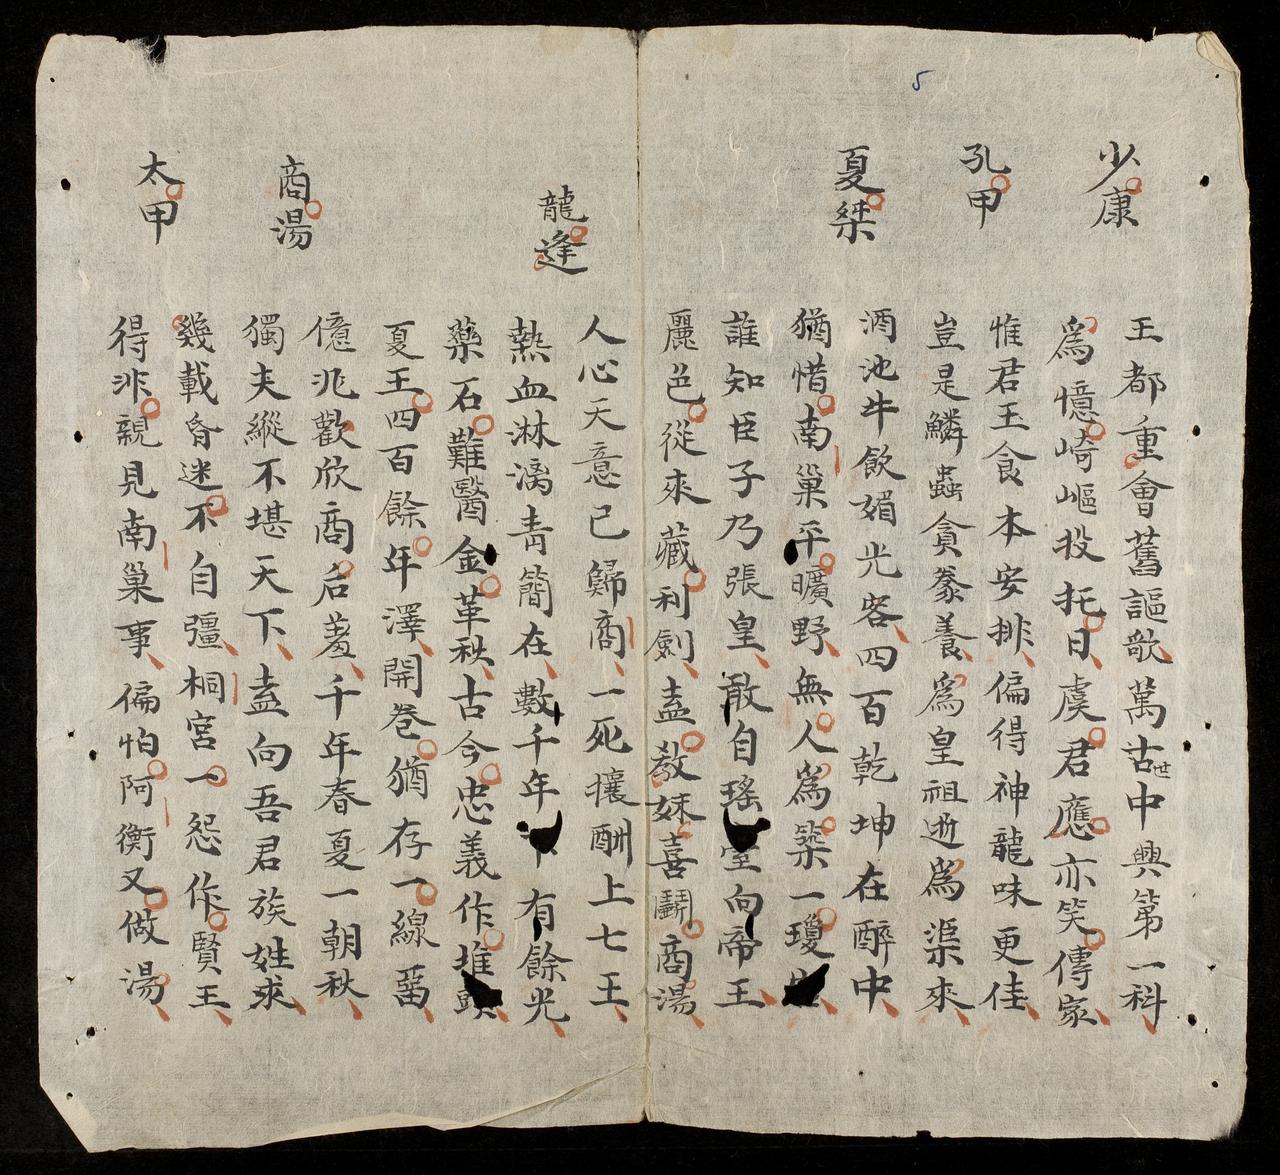 5
少康
王都重會舊謳歌萬古世中興第一科
爲憶崎嶇投托日虞君應亦笑傳家
孔甲
惟君玉食本安排偏得神龍味更佳
豈是鱗蟲貪豢養爲皇祖逝爲渠來
夏桀
酒池牛飲媚光容四百乾坤在醉中
猶惜南巢平曠野無人爲築一瓊
誰知臣子乃張皇敢自瑤室向帝王
麗邑從來藏利劍盍教妹喜鬪商湯
龍逢
人心天意已歸商一死攘酬上七王
熱血淋漓靑簡在數千年 有餘光
藥石難醫金革秋古今忠義作堆頭
夏王四百餘年澤開卷猶存一線畱
商湯
億兆歡欣商后羞千年春夏一朝秋
獨夫縱不堪天下盍向吾君族姓求
太甲
幾載昏迷不自彊桐宮一怨作賢王
得非親見南巢事偏怕阿衡又做湯